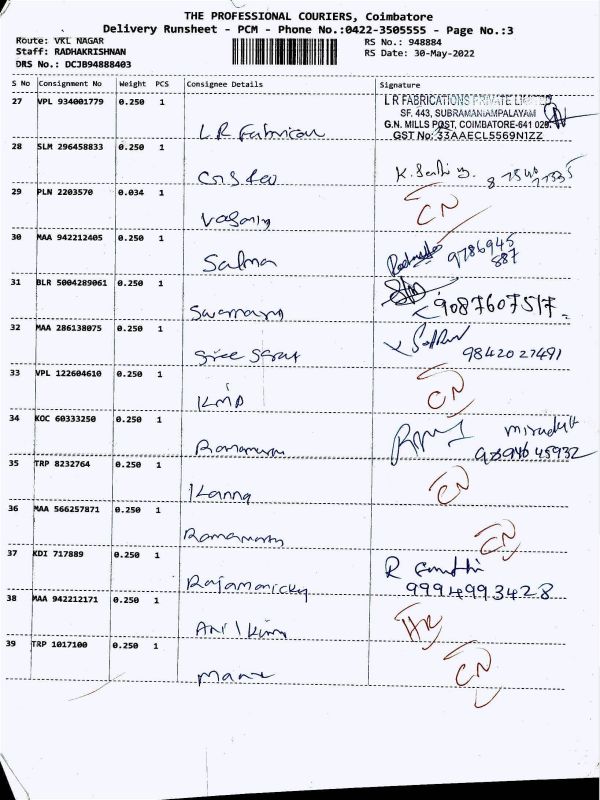 THE PROFESSIONAL COURIERS, Coimbatore
Delivery Runsheet - PCM - Phone No.:0422-3505555 - Page No.:3
Route: VKL NAGAR
Staff: RADHAKRISHNAN
DRS No.: DCJB94888403
RS No.: 948884
RS Date: 30-May-2022
S No Consignment No Weight PCS Consignee Details Signature
27 VPL 934001779 0.250 1
L R FABRICATIONS PRIVATE LIMITED
SF. 443, SUBRAMANIAMPALAYAM
G.N. MILLS POST, COIMBATORE-641 029.
GST No: 33AAECL5569N1ZZ
L.R Fabrication
28 SLM 296458833 0.250 1
29 PLN 2203570 0.034 1
CN
30 MAA 942212405 0.250 1
Salma
9786945
887
31 BLR 5004289061 0.250 1
9087607517
32 MAA 286138075 0.250 1
Sree
9842027491
33 VPL 122604610 0.250 1
CN
34 KOC 60333250 0.250 1
35 TRP 8232764 0.250 1
Kanna
CN
36 MAA 566257871 0.250 1
Ramamurthy
CN
37 KDI 717889 0.250 1
Rajamanicky
R
9994993428
38 MAA 942212171 0.250 1
39 TRP 1017100 0.250 1
CN